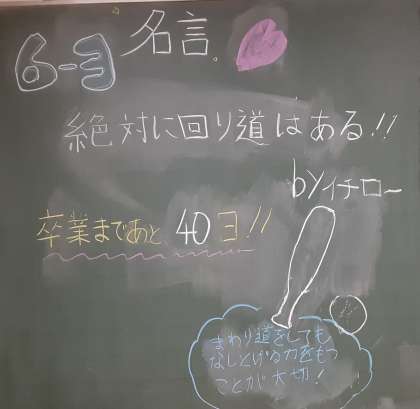 6-3 名言。
絶対に回り道はある!!
byイチロー
卒業まであと 40日!!
まわり道をしても
なしとげる力をもつ
ことが大切!